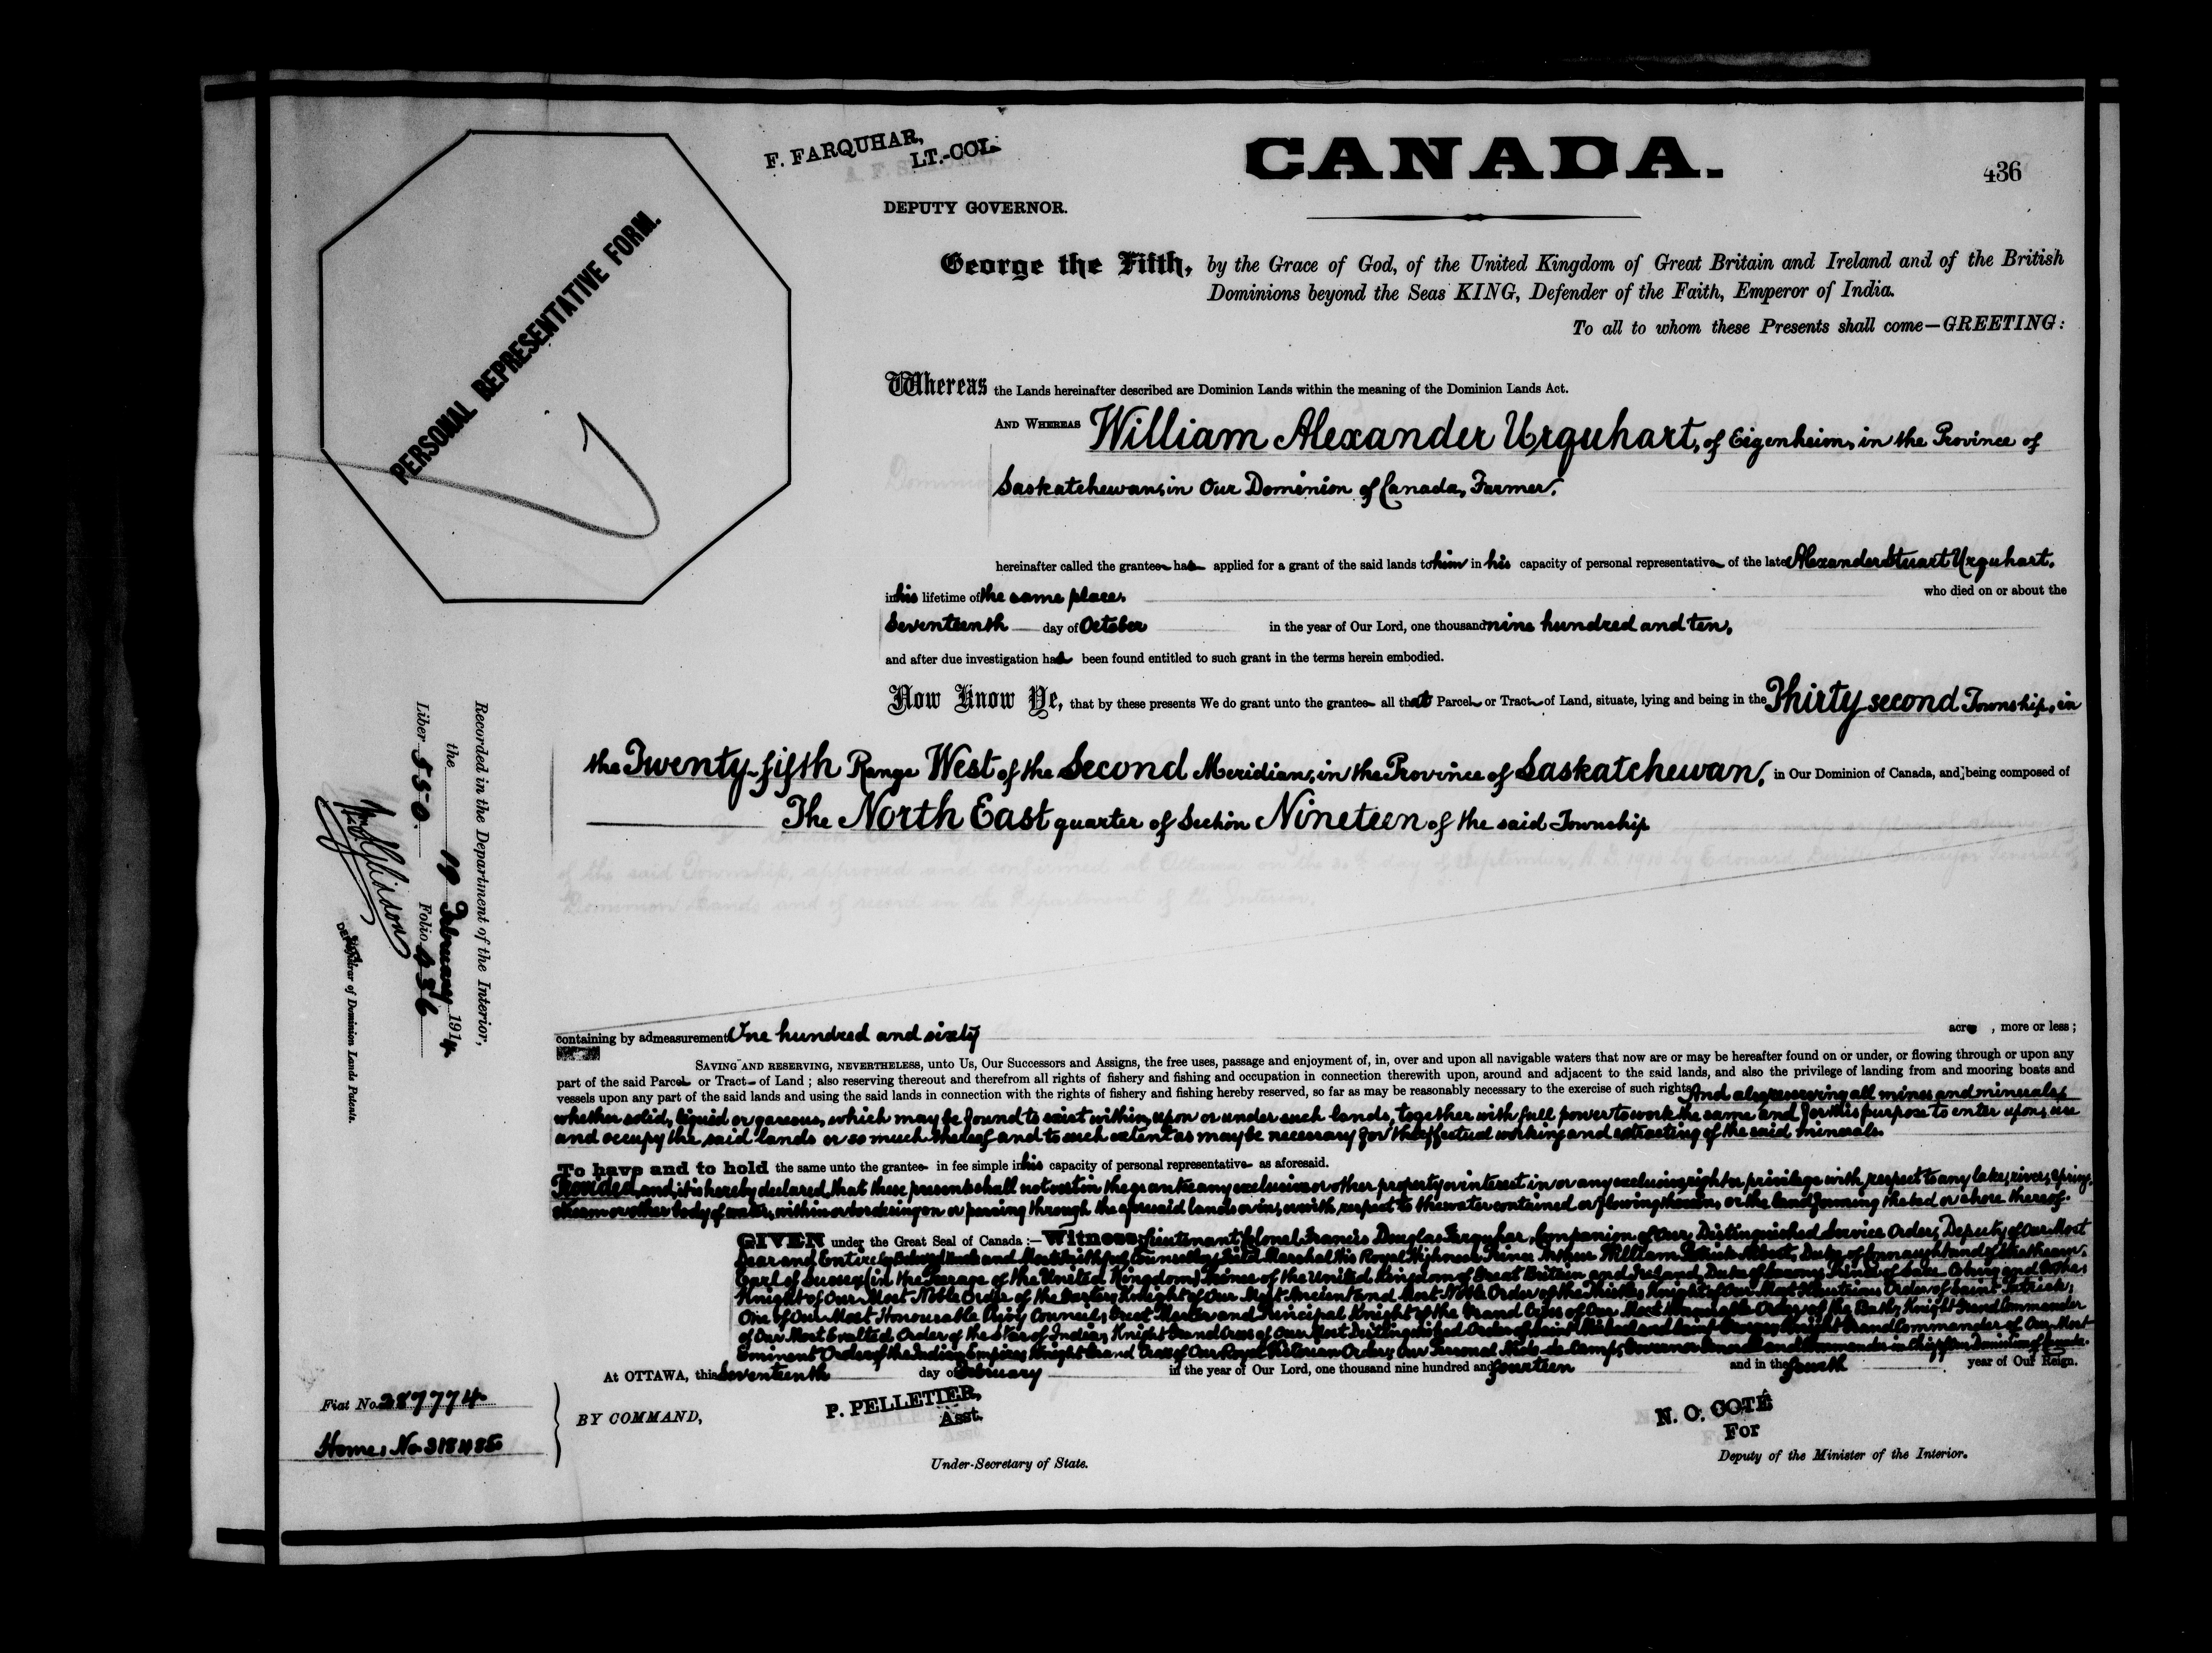 F. FARQUHAR,
LT.-COL.
DEPUTY GOVERNOR.
CANADA.
436
PERSONAL REPRESENTATIVE FORM.
George the Fifth, by the Grace of God, of the United Kingdom of Great Britain and Ireland and of the British
Dominions beyond the Seas KING, Defender of the Faith, Emperor of India.
To all to whom these Presents shall come—GREETING:
Whereas the Lands hereinafter described are Dominion Lands within the meaning of the Dominion Lands Act.
AND WHEREAS William Alexander Urquhart, of Eigenheim, in the Province of
Saskatchewan, in Our Dominion of Canada, Farmer,
hereinafter called the grantee has applied for a grant of the said lands to him in his capacity of personal representative of the late Alexander Stuart Urquhart,
in his lifetime of the same place, who died on or about the
Seventeenth day of October in the year of Our Lord, one thousand nine hundred and ten,
and after due investigation has been found entitled to such grant in the terms herein embodied.
Now Know Ye, that by these presents We do grant unto the grantee all that Parcel or Tract of Land, situate, lying and being in the Thirty second Township, in
the Twenty-fifth Range West of the Second Meridian, in the Province of Saskatchewan, in Our Dominion of Canada, and being composed of
The North East quarter of Section Nineteen of the said Township
containing by admeasurement One hundred and sixty acres , more or less;
SAVING AND RESERVING, NEVERTHELESS, unto Us, Our Successors and Assigns, the free uses, passage and enjoyment of, in, over and upon all navigable waters that now are or may be hereafter found on or under, or flowing through or upon any
part of the said Parcel or Tract of Land; also reserving thereout and therefrom all rights of fishery and fishing and occupation in connection therewith upon, around and adjacent to the said lands, and also the privilege of landing from and mooring boats and
vessels upon any part of the said lands and using the said lands in connection with the rights of fishery and fishing hereby reserved, so far as may be reasonably necessary to the exercise of such rights, And also reserving all mines and minerals,
whether solid, liquid or gaseous, which may be found to exist within, upon or under such lands, together with full power to work the same and for this purpose to enter upon, use
and occupy the said lands or so much thereof and to such extent as may be necessary for the effectual working and extracting of the said minerals.
To have and to hold the same unto the grantee in fee simple in his capacity of personal representative as aforesaid.
Provided, and it is hereby declared, that these presents shall not vest in the grantee any exclusive or other property or interest in or any exclusive right or privilege with respect to any lake, river, spring,
stream or other body of water, within or bordering on or passing through the aforesaid lands or in, or with respect to the water contained or flowing therein, or the land forming the bed or shore thereof.
GIVEN under the Great Seal of Canada:—Witness, Lieutenant Colonel Francis Douglas Farquhar, Companion of Our Distinguished Service Order, Deputy of Our Most
Dear and Entirely Beloved Uncle and Most Faithful Counsellor, Field Marshal His Royal Highness Prince Arthur William Patrick Albert, Duke of Connaught and of Strathearn,
Earl of Sussex (in the Peerage of the United Kingdom) Prince of the United Kingdom of Great Britain and Ireland, Duke of Saxony, Prince of Saxe Coburg and Gotha;
Knight of Our Most Noble Order of the Garter; Knight of Our Most Ancient and Most Noble Order of the Thistle; Knight of Our Most Illustrious Order of Saint Patrick;
One of Our Most Honourable Privy Council; Great Master and Principal Knight of the Grand Cross of Our Most Honourable Order of the Bath; Knight Grand Commander
of Our Most Exalted Order of the Star of India; Knight Grand Cross of Our Most Distinguished Order of Saint Michael and Saint George; Knight Grand Commander of Our Most
Eminent Order of the Indian Empire; Knight Grand Cross of Our Royal Victorian Order; Our Personal Aide-de-Camp; Governor General and Commander in Chief of Our Dominion of Canada.
At OTTAWA, this Seventeenth day of February in the year of Our Lord, one thousand nine hundred and fourteen and in the fourth year of Our Reign.
BY COMMAND,
P. PELLETIER,
Asst.
Under-Secretary of State.
N. O. COTÉ
For
Deputy of the Minister of the Interior.
Fiat No. 287774
Home. No 318485
Recorded in the Department of the Interior,
the 19 February 1914
Liber 550. Folio 436
Registrar of Dominion Lands Patents.